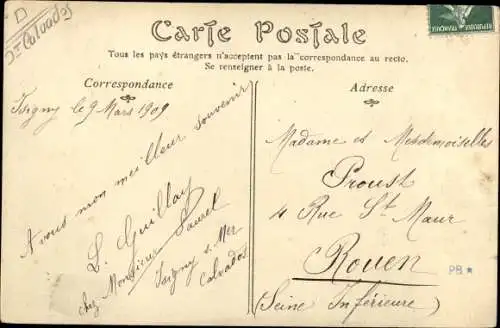 D
Dt Calvados
Carte Postale
Tous les pays étrangers n'acceptent pas la correspondance au recto.
Se renseigner à la poste.
Correspondance
Isigny le 9 Mars 1909
A vous mon meilleur souvenir
L. Guillay
chez Monsieur Saurel
Isigny s. Mer
Calvados
Adresse
Madame et Mesdemoiselles
Proust
4 Rue St Maur
Rouen
(Seine Inférieure)
PB *